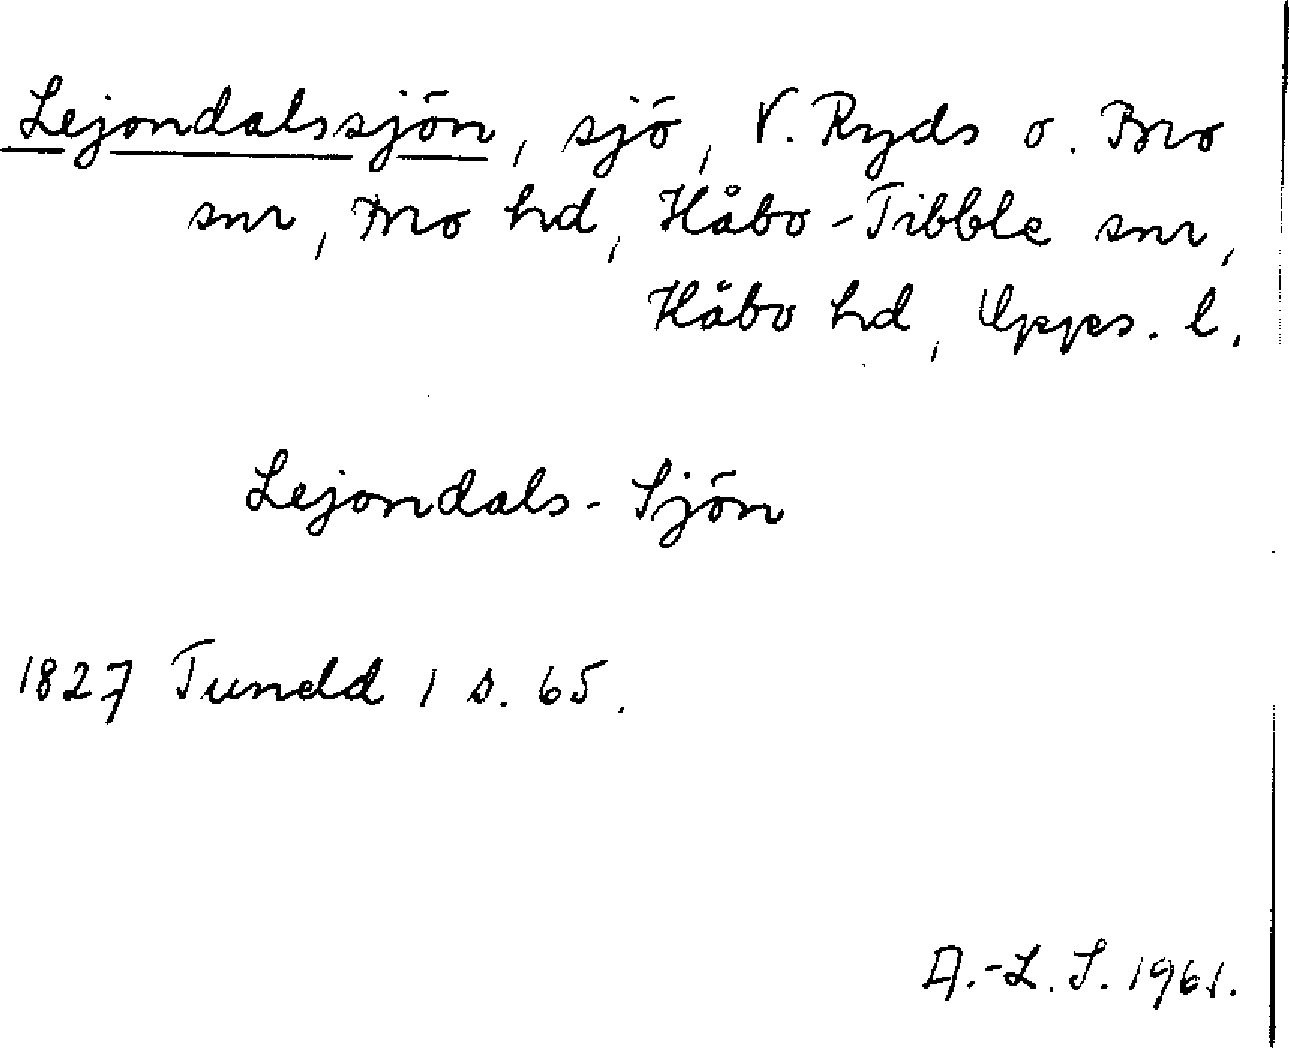 Lejondalssjön, sjö, V. Ryds o. Bro
snr, Bro hd, Håbo-Tibble snr,
Håbo hd, Upps. l.
Lejondals-Sjön
1827 Tuneld 1 s. 65.
A.-L. S. 1961.